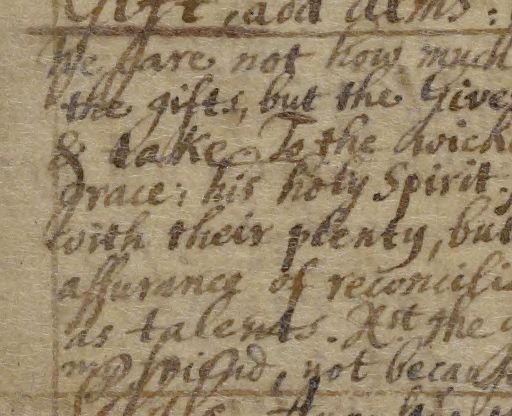 Gift, and alms:
We are not how much
the gifts, but the Give
& take. To the wick
grace: his holy Spirit.
with their plenty, but
assurance of reconcili
as talents. At the
my friend, not becaus